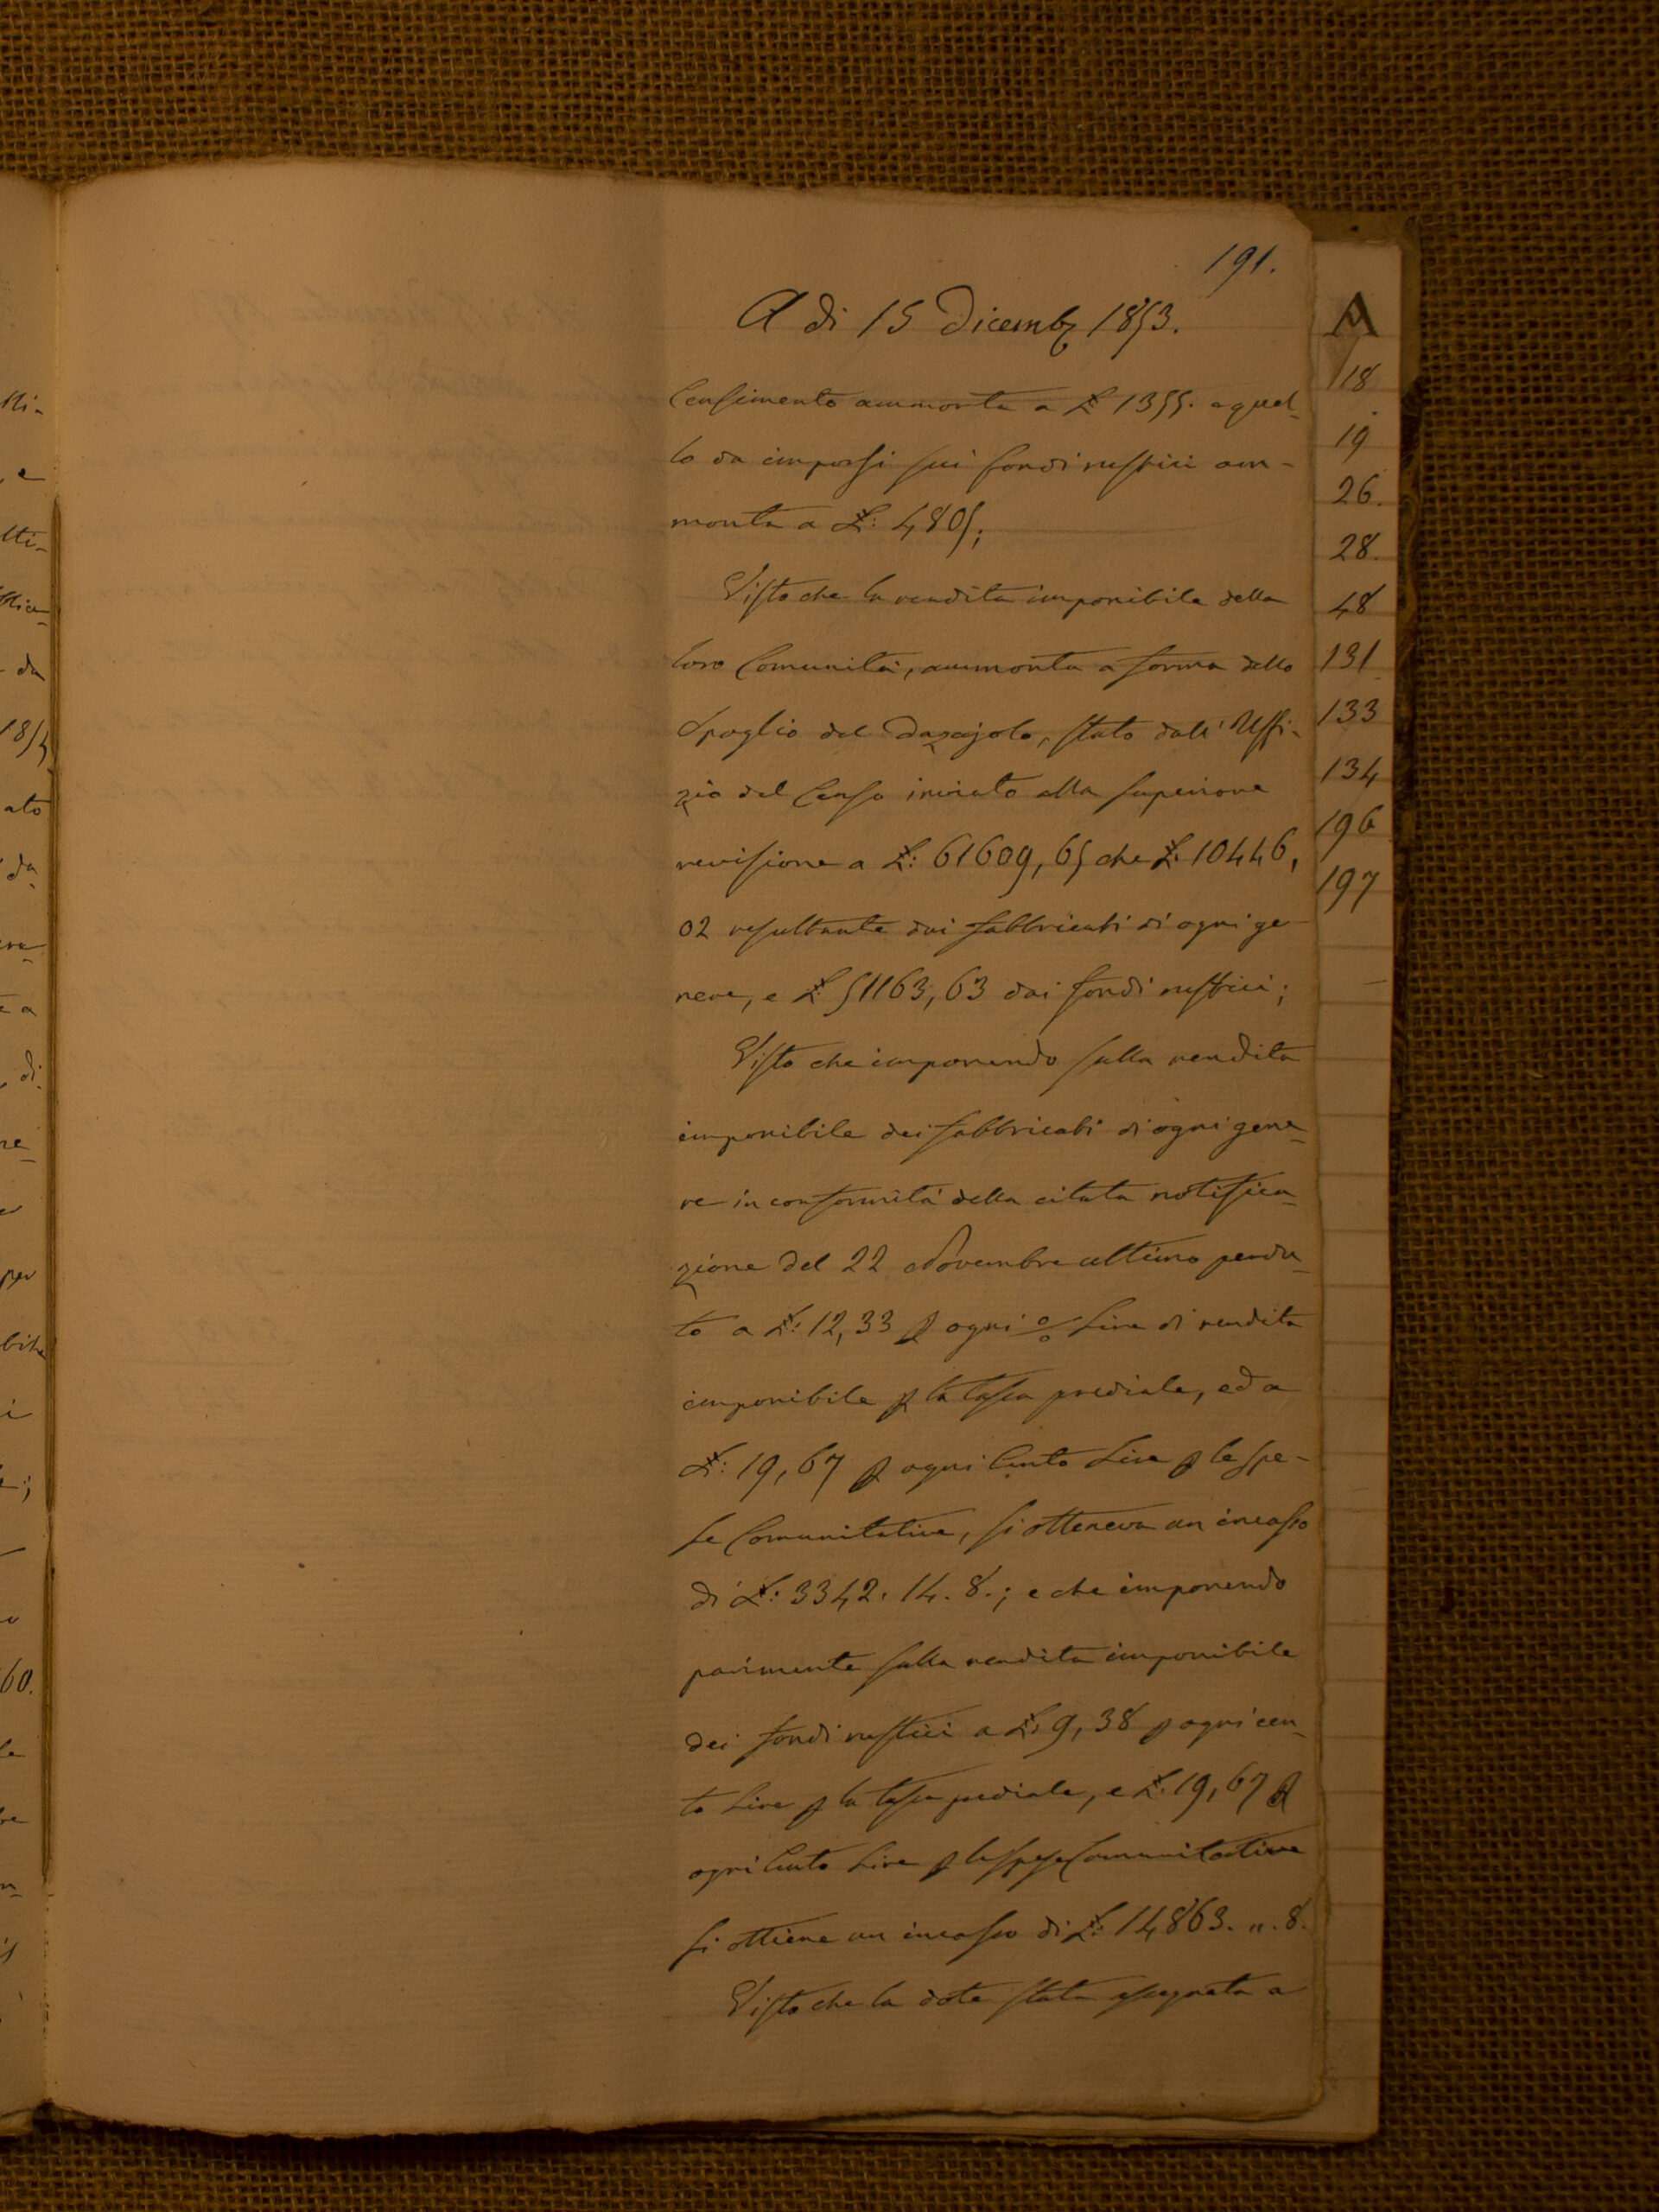 191.
A di 15 Dicemb: 1853.
Censimento ammonta a £ 1355. e quel-
lo da imporsi sui fondi rustici am-
monta a £: 4805;
Visto che la rendita imponibile della
loro Comunità, ammonta a forma dello
Spoglio del Dazajolo, stato dall' Uffi-
zio del Censo inviato alla superiore
revisione a £: 61609,65 che £: 10446,
02 resultante dai fabbricati di ogni ge-
nere, e £: 51163,63 dai fondi rustici;
Visto che imponendo sulla rendita
imponibile dei fabbricati di ogni gene-
re in conformità della citata notifica-
zione del 22 Novembre ultimo perdu-
to a £: 12,33 p ogni % Lire di rendita
imponibile p la tassa prediale, ed a
£: 19,67 p ogni Cento Lire p le spe-
se Comunitative, si otteneva un incasso
di £: 3342. 14. 8.; e che imponendo
parimente sulla rendita imponibile
dei fondi rustici a £: 9,38 p ogni cen-
to Lire p la tassa prediale, e £: 19,67 p
ogni Cento Lire p le spese Comunitative
si ottiene un incasso di £: 14863. ". 8.
Visto che la dote stata assegnata a
A
18
19
26.
28.
48
131
133
134
196
197